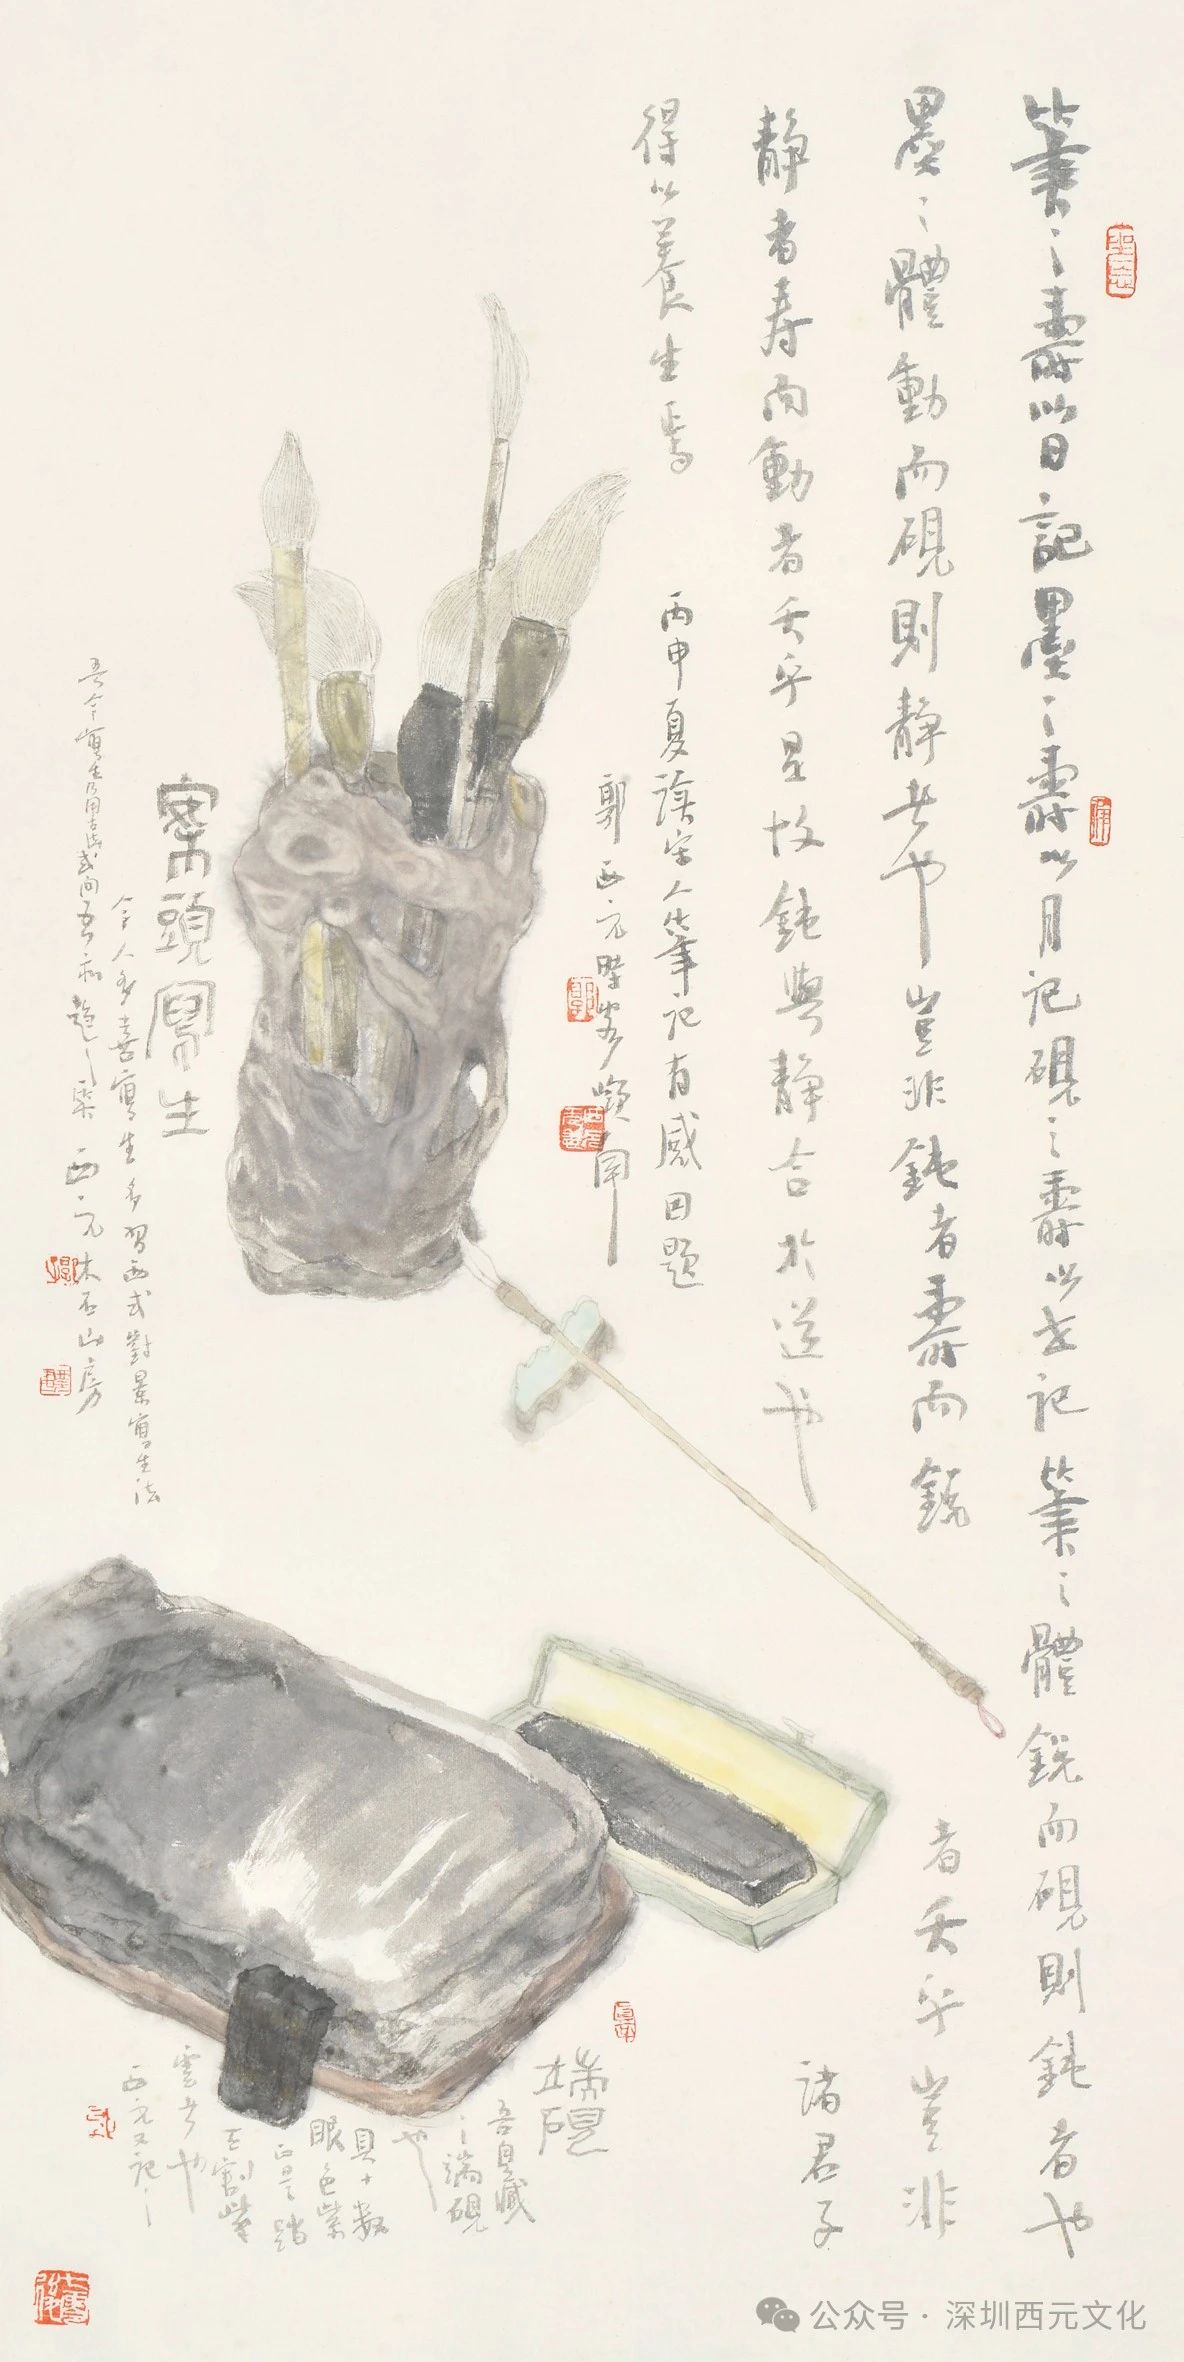 筆之壽以日記墨之壽以月記硯之壽以世記筆之體銳而硯則鈍者也
墨之體動而硯則靜者也豈非鈍者壽而銳者夭乎豈非
静者寿而動者夭乎是故鈍與静合於道也諸君子
得以養生焉
丙申夏讀宋人筆記有感因題
郭西元時客嶺南
案頭寫生
今人多喜寫生多習西式對景寫生法
吾今寫生乃用古法或向吾 西元木石山房
端硯
吾自藏
之端硯
也
具十数
眼色紫
正是踏
天割紫
雲者也
西元又記之
公众号·深圳西元文化